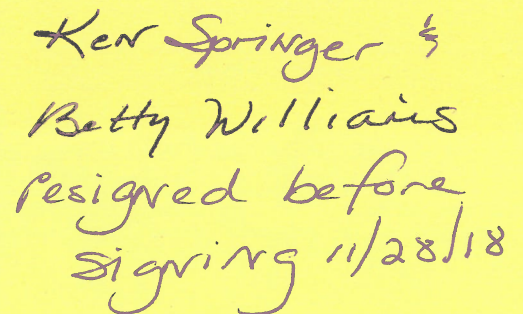 Ken Springer &
Betty Williams
resigned before
signing 11/28/18